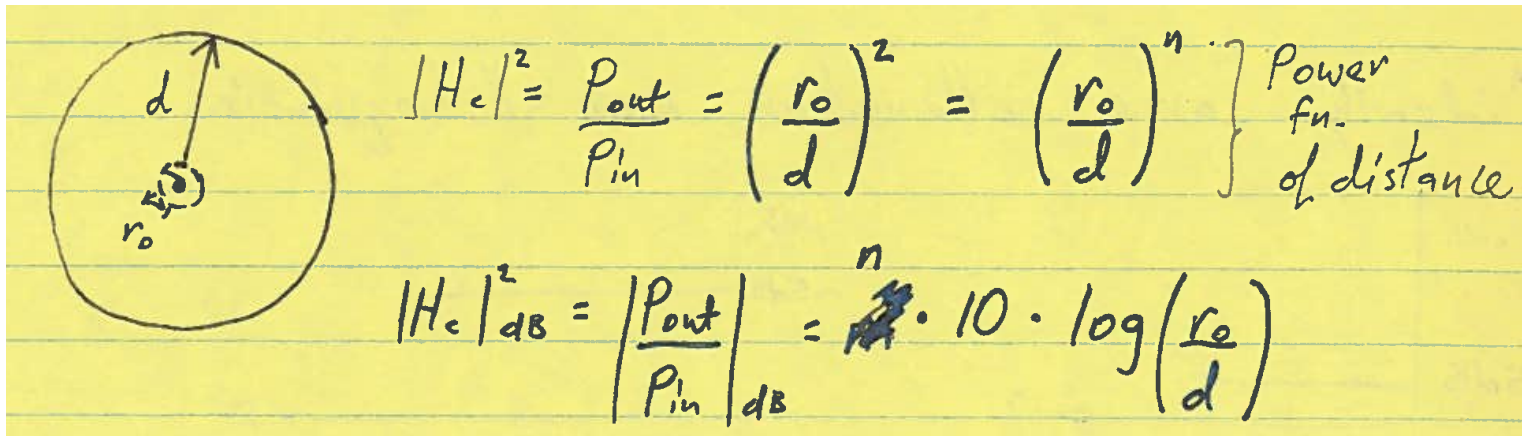 d
r₀
|Hc|² = Pout/Pin = (r₀/d)² = (r₀/d)ⁿ } Power fn. of distance
|Hc|²dB = |Pout/Pin|dB = n · 10 · log(r₀/d)